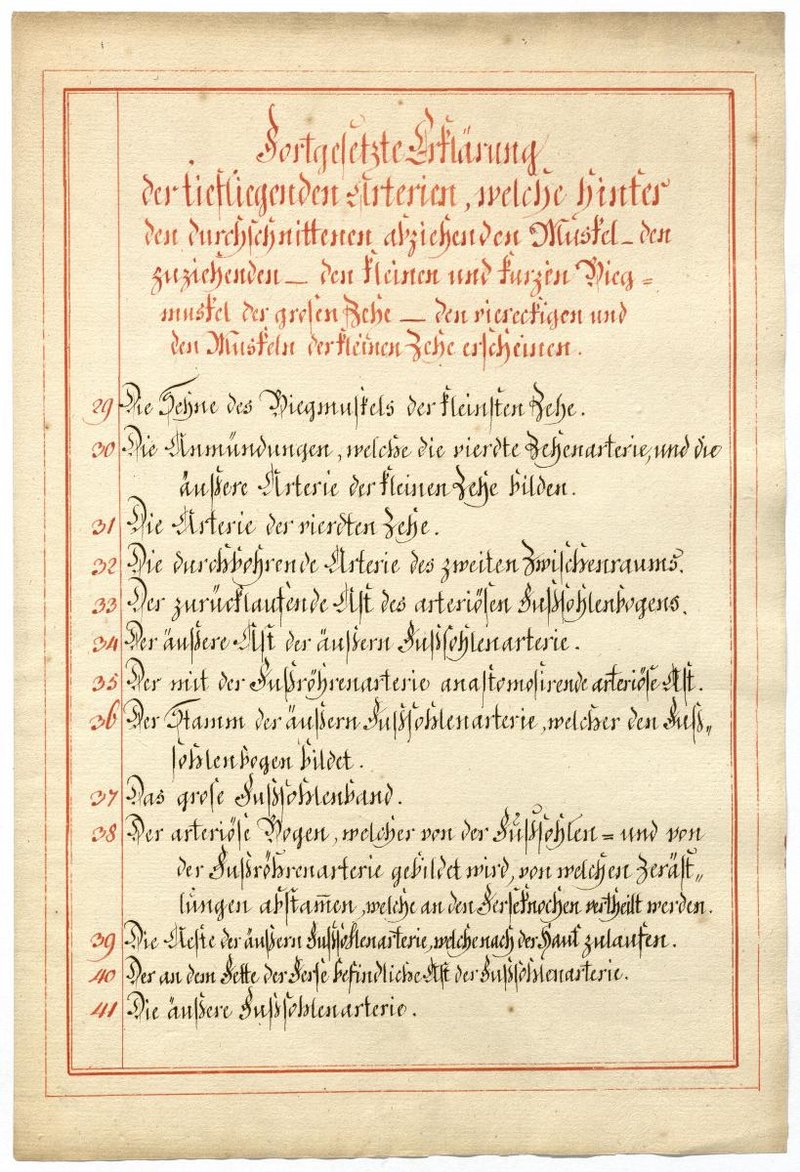 Fortgesetzte Erklärung
der tiefliegenden Arterien, welche hinter
den durchschnittenen abziehenden Muskel – den
zuziehenden – den kleinen und kurzen Bieg=
muskel der grosen Zehe – den viereckigen und
den Muskeln der kleinen Zehe erscheinen.
29 Die Sehne des Biegmuskels der kleinsten Zehe.
30 Die Anmündungen, welche die vierdte Zehenarterie, und die
äußere Arterie der kleinen Zehe bilden.
31 Die Arterie der vierdten Zehe.
32 Die durchbohrende Arterie des zweiten Zwischenraums.
33 Der zurücklaufende Ast des arteriösen Fußsohlenbogens.
34 Der äußere Ast der äußern Fußsohlenarterie.
35 Der mit der Fußröhrenarterie anastomosirende arteriöse Ast.
36 Der Stamm der äußern Fußsohlenarterie, welcher den Fuß„
sohlenbogen bildet.
37 Das grose Fußsohlenband.
38 Der arteriöse Bogen, welcher von der Fußsohlen = und von
der Fußröhrenarterie gebildet wird, von welchen Zeräst„
lungen abstam̅en, welche an den Ferseknochen vertheilt werden.
39 Die Aeste der äußern Fußsohlenarterie, welche nach der Haut zulaufen.
40 Der an dem Fette der Ferse befindliche Ast der Fußsohlenarterie.
41 Die äußere Fußsohlenarterie.